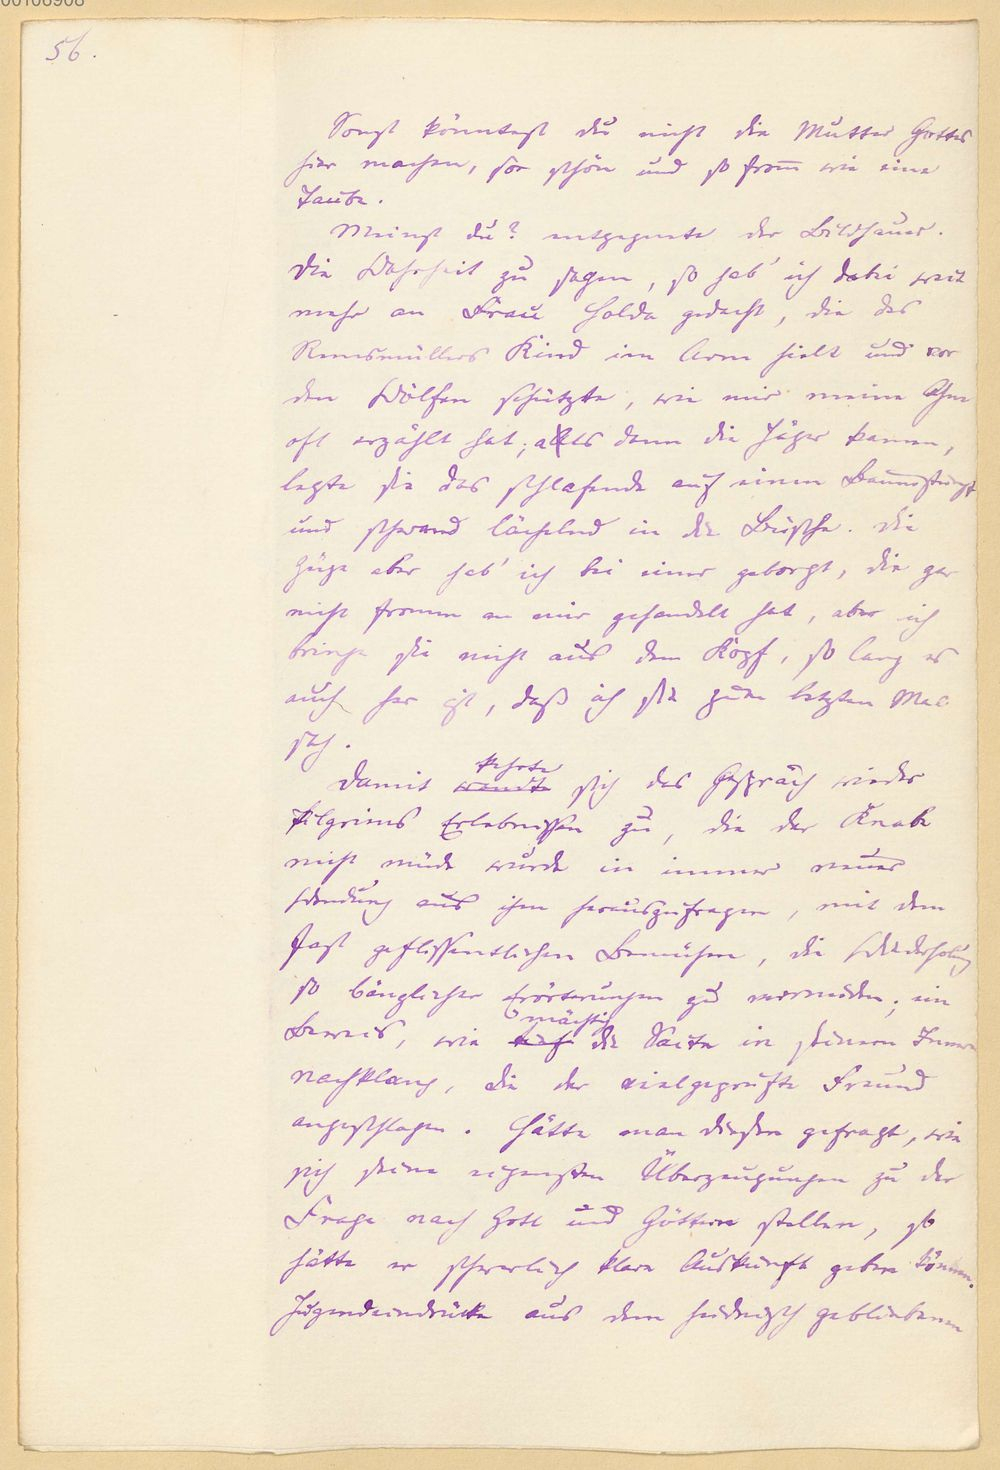 00106908
56.
Sonst könntest du nicht die Mutter Gottes
hier machen, so schön und so from̅ wie eine
Taube.
Meinst du? entgegnete der Bildhauer.
Die Wahrheit zu sagen, so hab' ich dabei weit
mehr an Frau Holda gedacht, die des
Remsmüllers Kind im Arm hielt und vor
den Wölfen schützte, wie mir meine Ahne
oft erzählt hat; als dann die Jäger kamen,
legte sie das schlafende auf einen Baumstumpf
und schwand lächelnd in die Büsche. Die
Züge aber hab' ich bei einer geborgt, die gar
nicht fromm an mir gehandelt hat, aber ich
bringe sie nicht aus dem Kopf, so lang es
auch her ist, daß ich sie zum letzten Mal
sah.
kehrte
Damit wandte sich das Gespräch wieder
Pilgrims Erlebnissen zu, die der Knabe
nicht müde wurde in immer neuer
Wendung aus ihm herauszufragen, mit dem
fast geflissentlichen Bemühen, die Wiederholung
so bänglicher Erörterungen zu vermeiden; ein
mächtig
Beweis, wie tief die Saite in seinem Innern
nachklang, die der vielgeprüfte Freund
angeschlagen. Hätte man diesen gefragt, wie
sich seine eigensten Überzeugungen zu der
Frage nach Gott und Göttern stellen, so
hätte er schwerlich klare Auskunft geben können.
Jugendeindrücke aus dem heidnisch gebliebenen